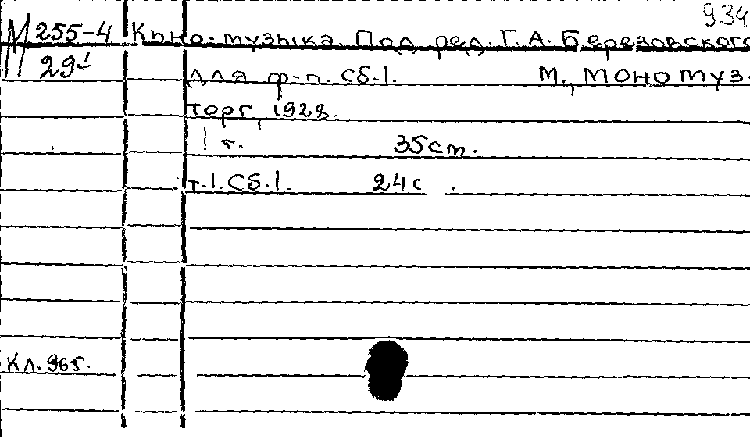 934
М 255-4 Кино-музыка. Под ред. Г. А. Березовского
29¹ для ф-п. Сб. 1. М., МОНОМУЗ-
торг, 1928.
1 т. 35 см.
т. 1. Сб. 1. 24 с.
Кл. 96 г.